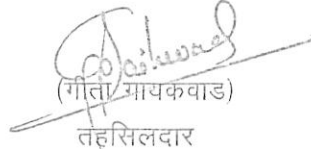 (गीता गायकवाड)
तहसिलदार